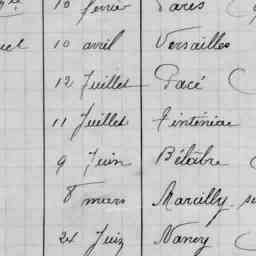 10 février Paris
10 avril Versailles
12 Juillet Pacé
11 Juillet Tinténiac
9 Juin Bélâbre
8 mars Marcilly
24 Nancy